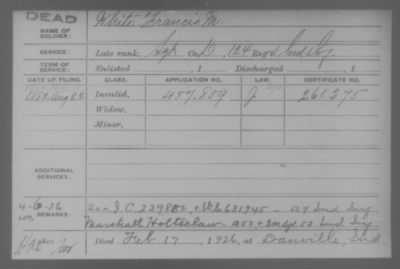 DEAD
NAME OF SOLDIER: White Francis M.
SERVICE: Late rank, Sgt Co. D, 124 Reg't Ind Inf
TERM OF SERVICE: Enlisted , 1 Discharged , 1
DATE OF FILING. CLASS. APPLICATION NO. LAW. CERTIFICATE NO.
Invalid, 457.859 J 261.375
Widow,
Minor,
ADDITIONAL SERVICES:
4-6-26
REMARKS: I C. 631945 - A 7 Ind Inf
Marshall Holtsclaw 53 Ind Inf
Died Feb 17, 1926, at Danville, Ind